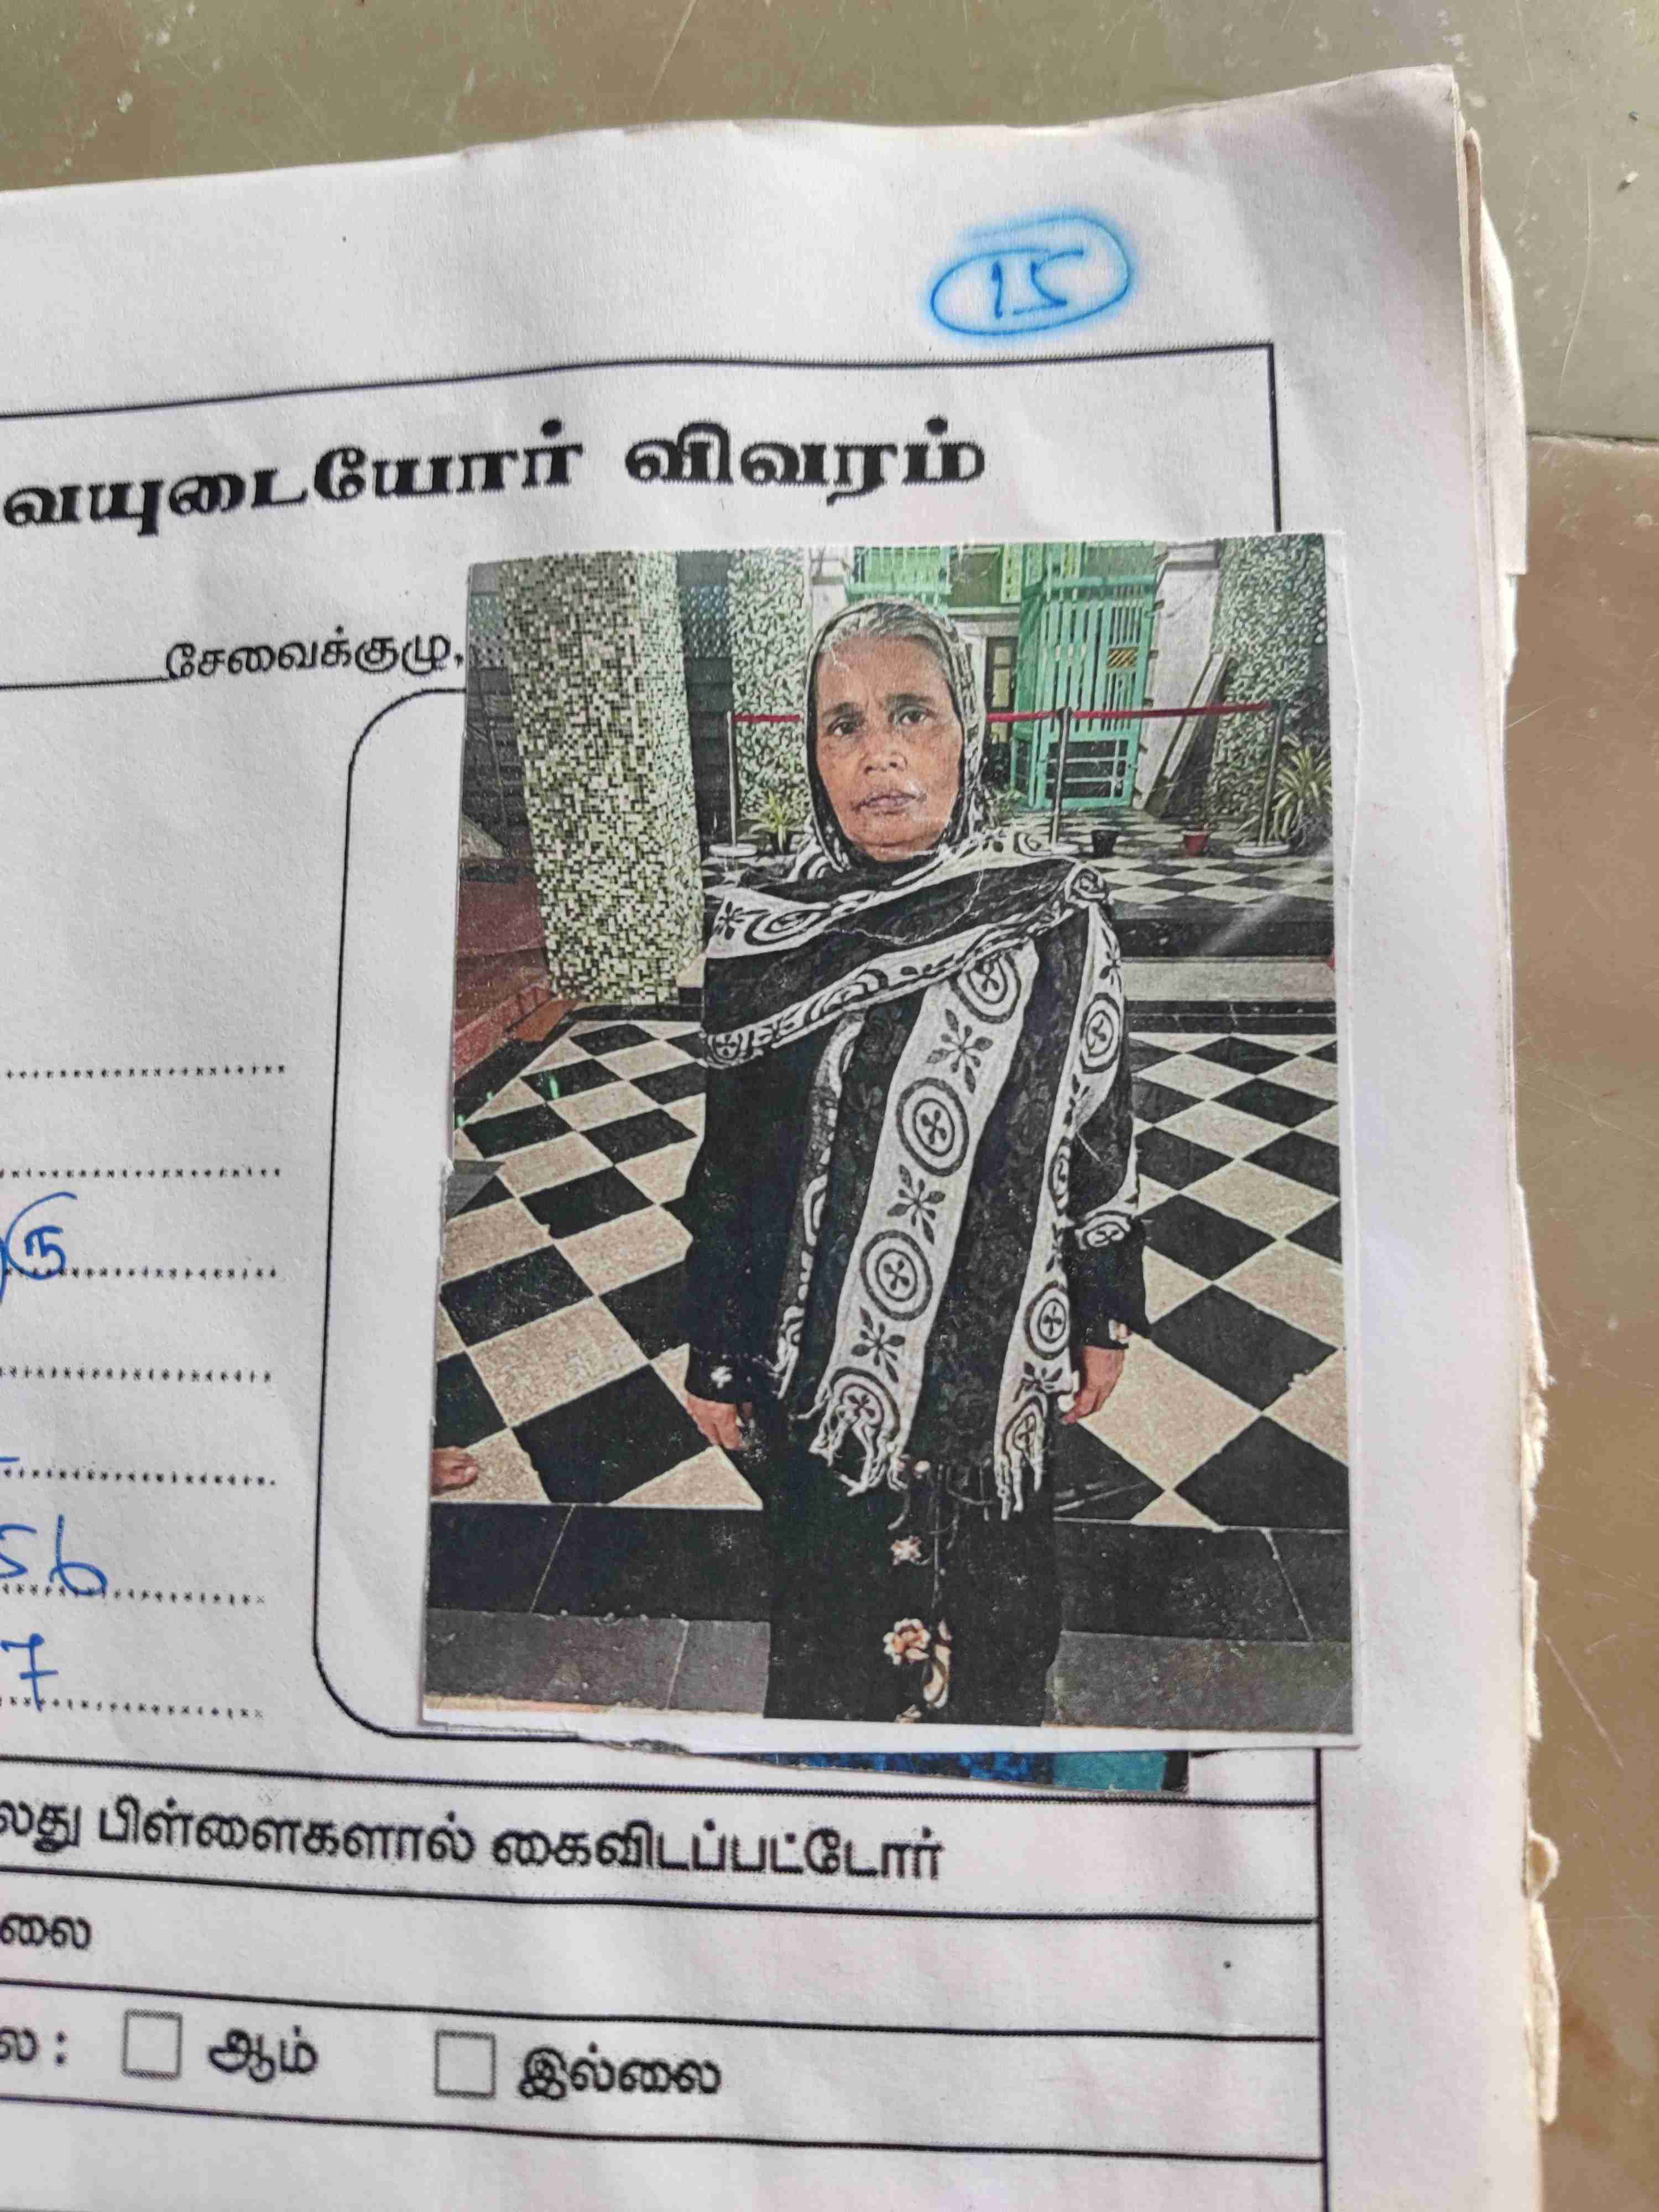 15
வையுடையோர் விவரம்
சேவைக்குழு.
ரு
56
7
லது பிள்ளைகளால் கைவிடப்பட்டோர்
லை
ல : ஆம் இல்லை